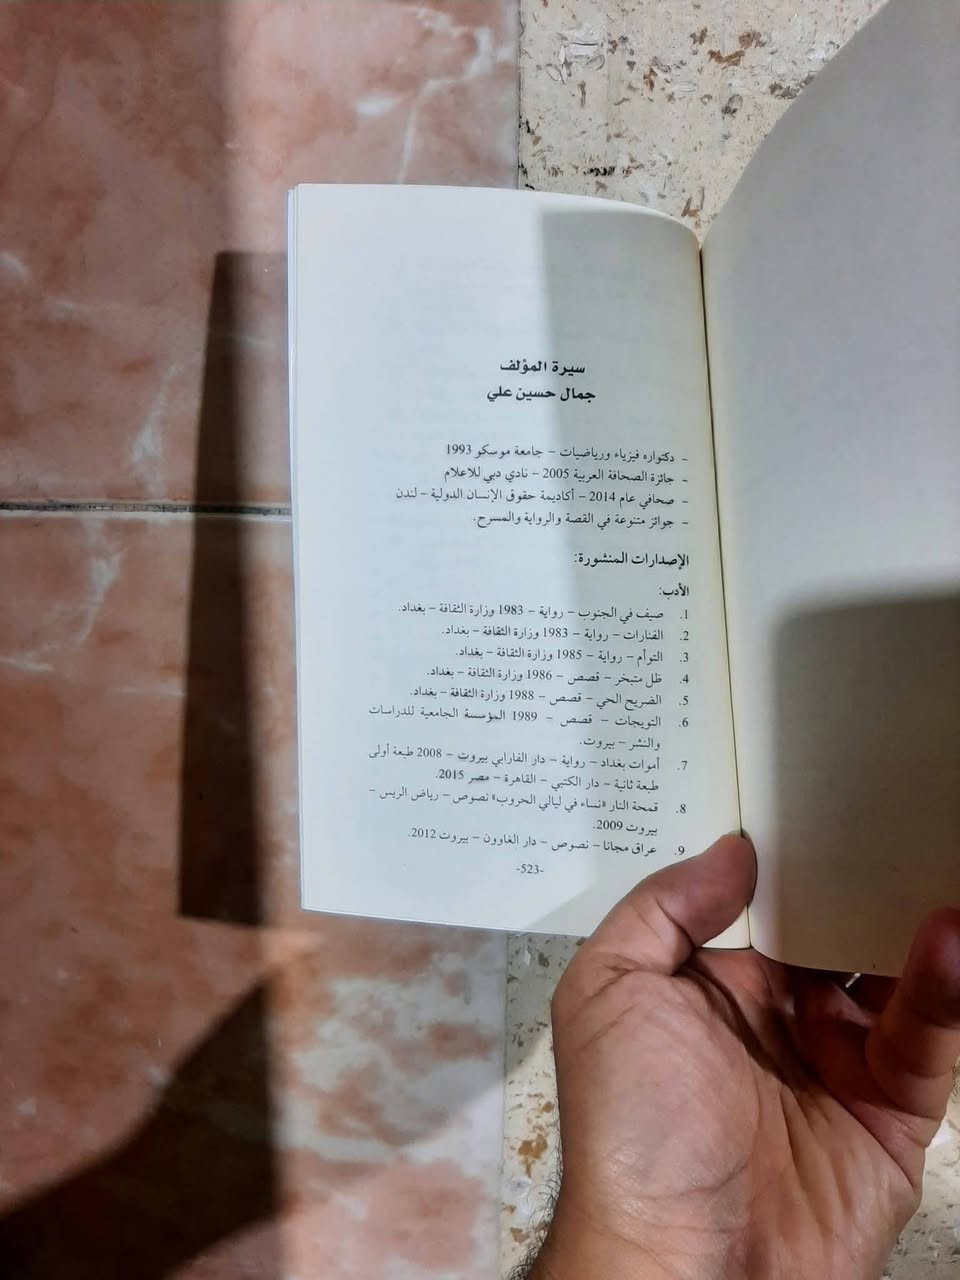 سيرة المؤلف
جمال حسين علي
- دكتواره فيزياء ورياضيات – جامعة موسكو 1993
- جائزة الصحافة العربية 2005 – نادي دبي للاعلام
- صحافي عام 2014 – أكاديمية حقوق الإنسان الدولية – لندن
- جوائز متنوعة في القصة والرواية والمسرح.
الإصدارات المنشورة:
الأدب:
1. صيف في الجنوب – رواية – 1983 وزارة الثقافة – بغداد.
2. الفنارات – رواية – 1983 وزارة الثقافة – بغداد.
3. التوأم – رواية – 1985 وزارة الثقافة – بغداد.
4. ظل متبخر – قصص – 1986 وزارة الثقافة – بغداد.
5. الضريح الحي – قصص – 1988 وزارة الثقافة – بغداد.
6. التويجات – قصص – 1989 المؤسسة الجامعية للدراسات
والنشر – بيروت.
7. أموات بغداد – رواية – دار الفارابي بيروت – 2008 طبعة أولى
طبعة ثانية – دار الكتبي – القاهرة – مصر 2015.
8. قمحة النار «نساء في ليالي الحروب» نصوص – رياض الريس –
بيروت 2009.
9. عراق مجانا – نصوص – دار الغاوون – بيروت 2012.
-523-